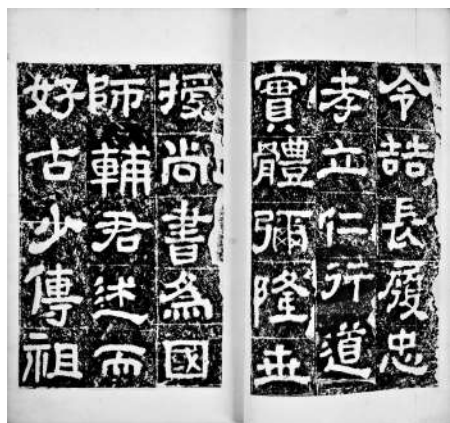 令喆長履忠
孝立仁行道
實體彌隆世
授尚書為國
師輔君述而
好古少傳祖